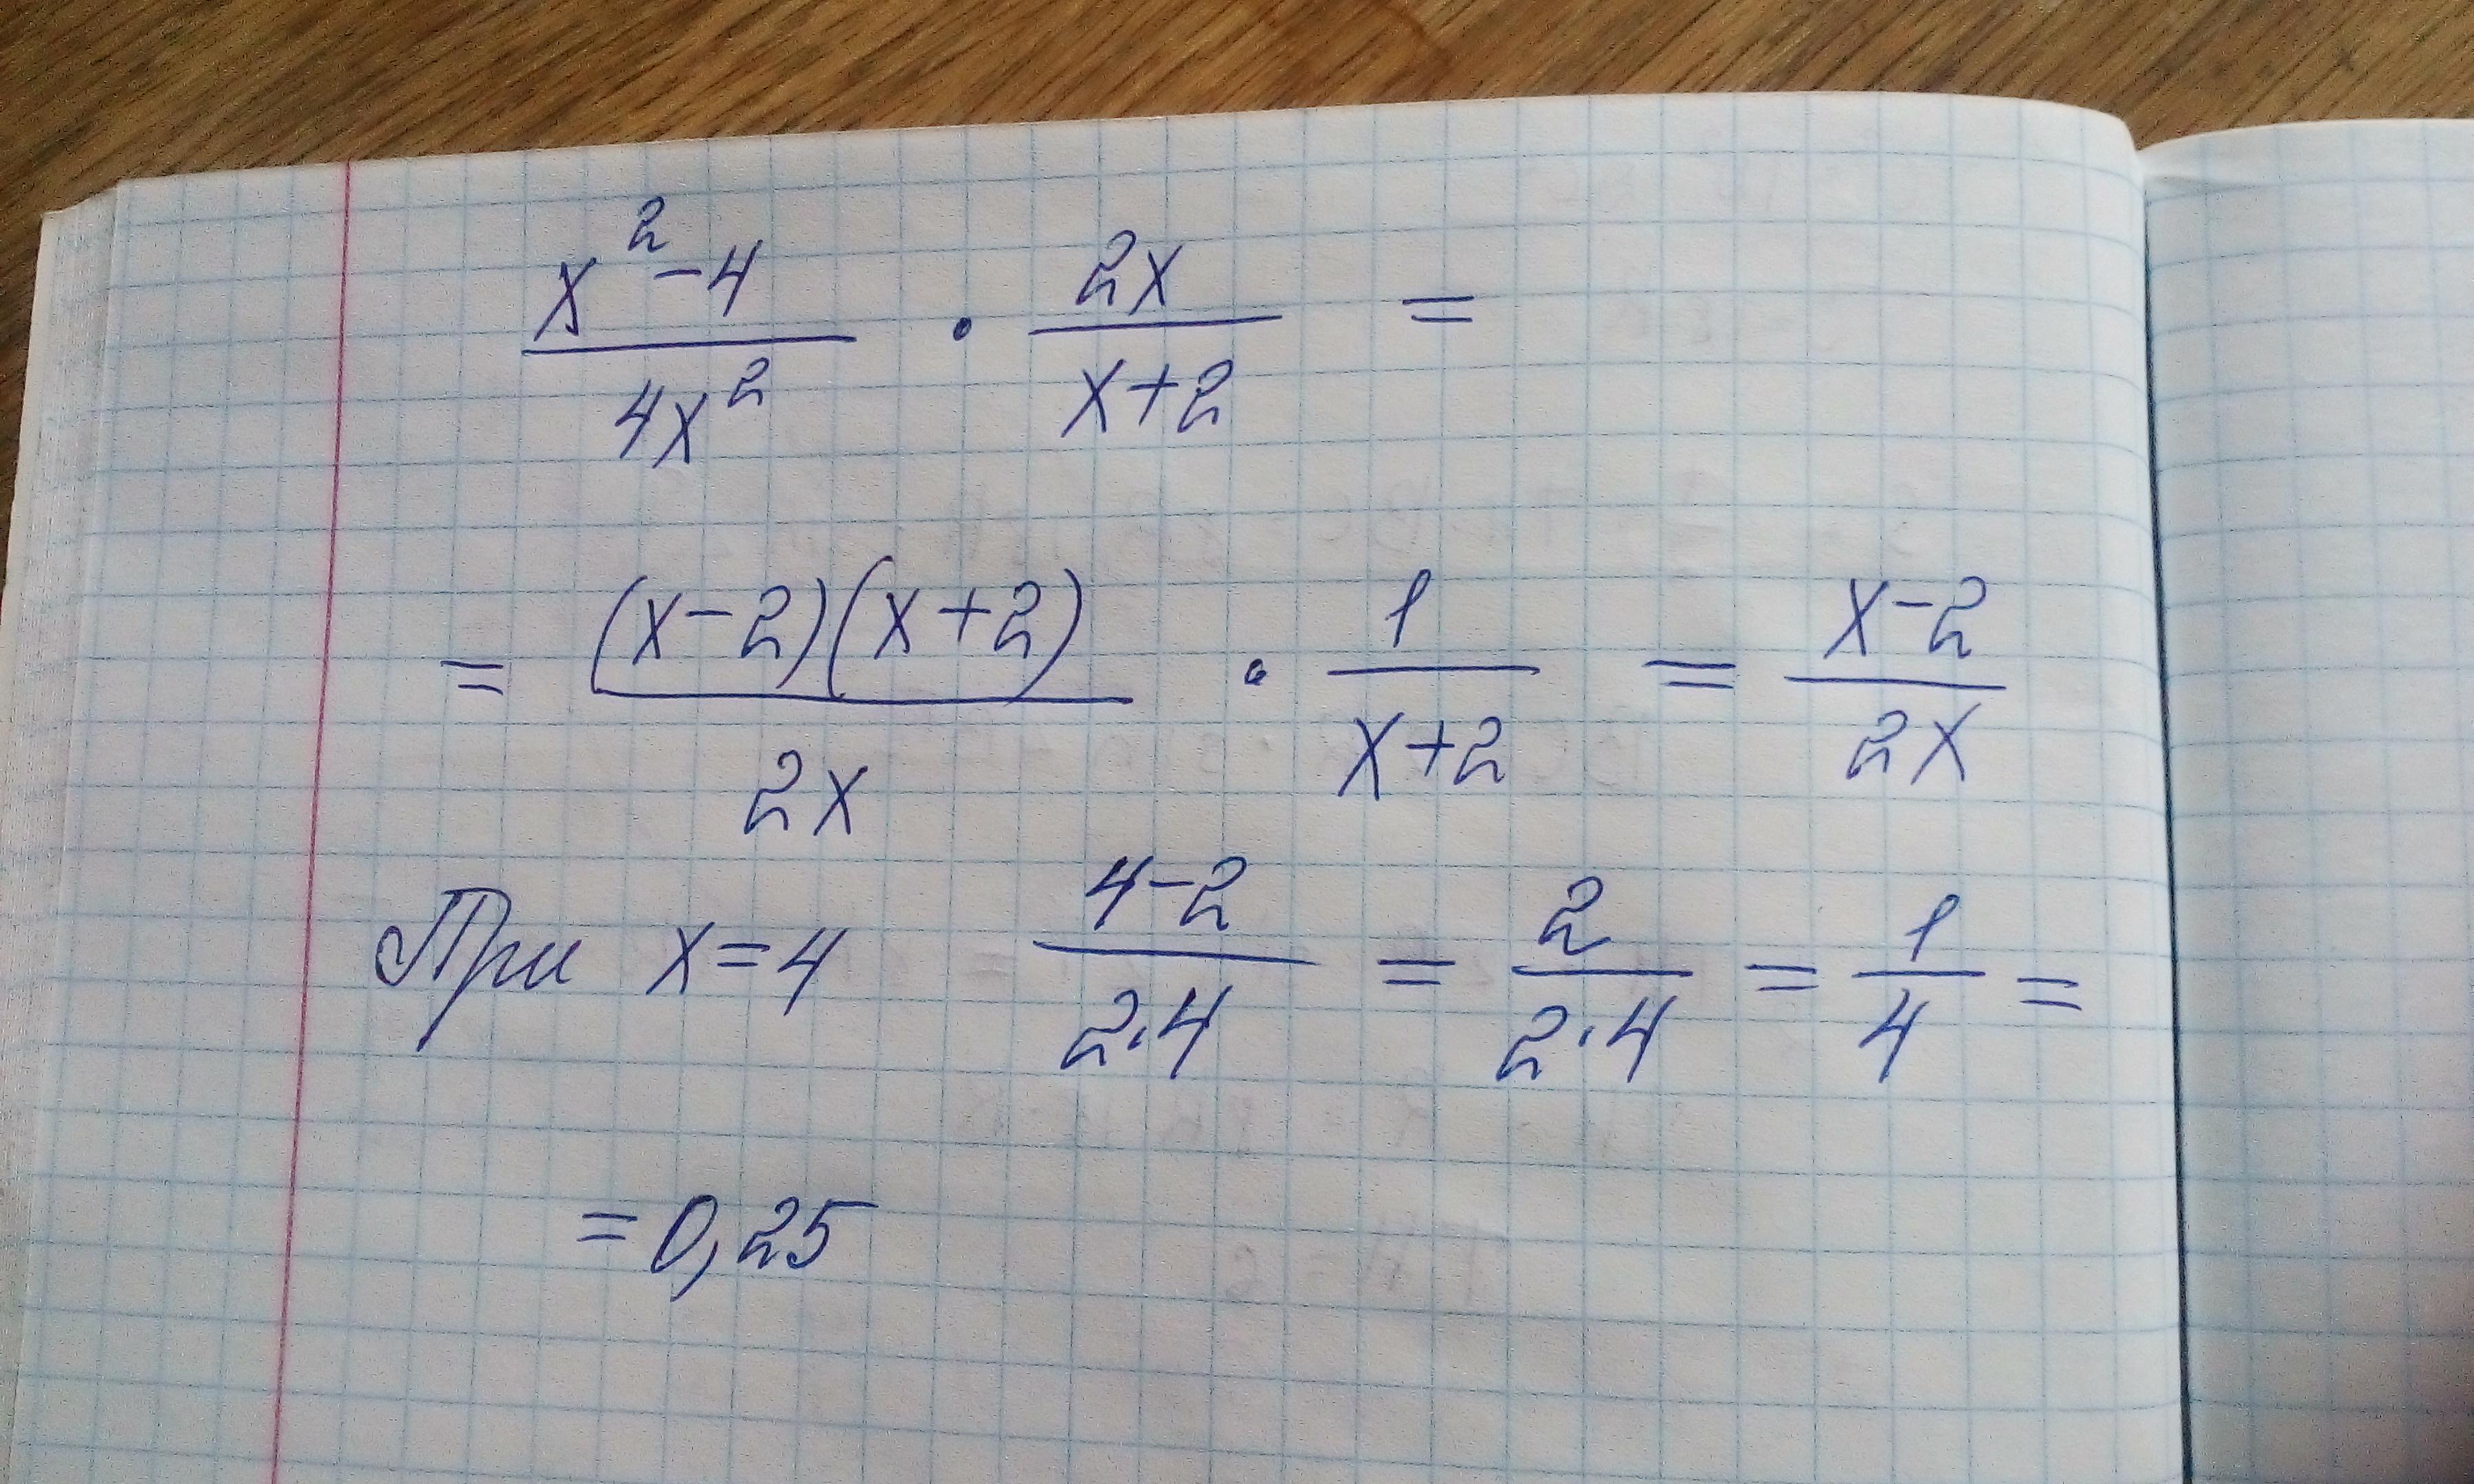 x²-4/4x² · 2x/x+2 =
= (x-2)(x+2)/2x · 1/x+2 = x-2/2x
При x=4 4-2/2·4 = 2/2·4 = 1/4 =
= 0,25